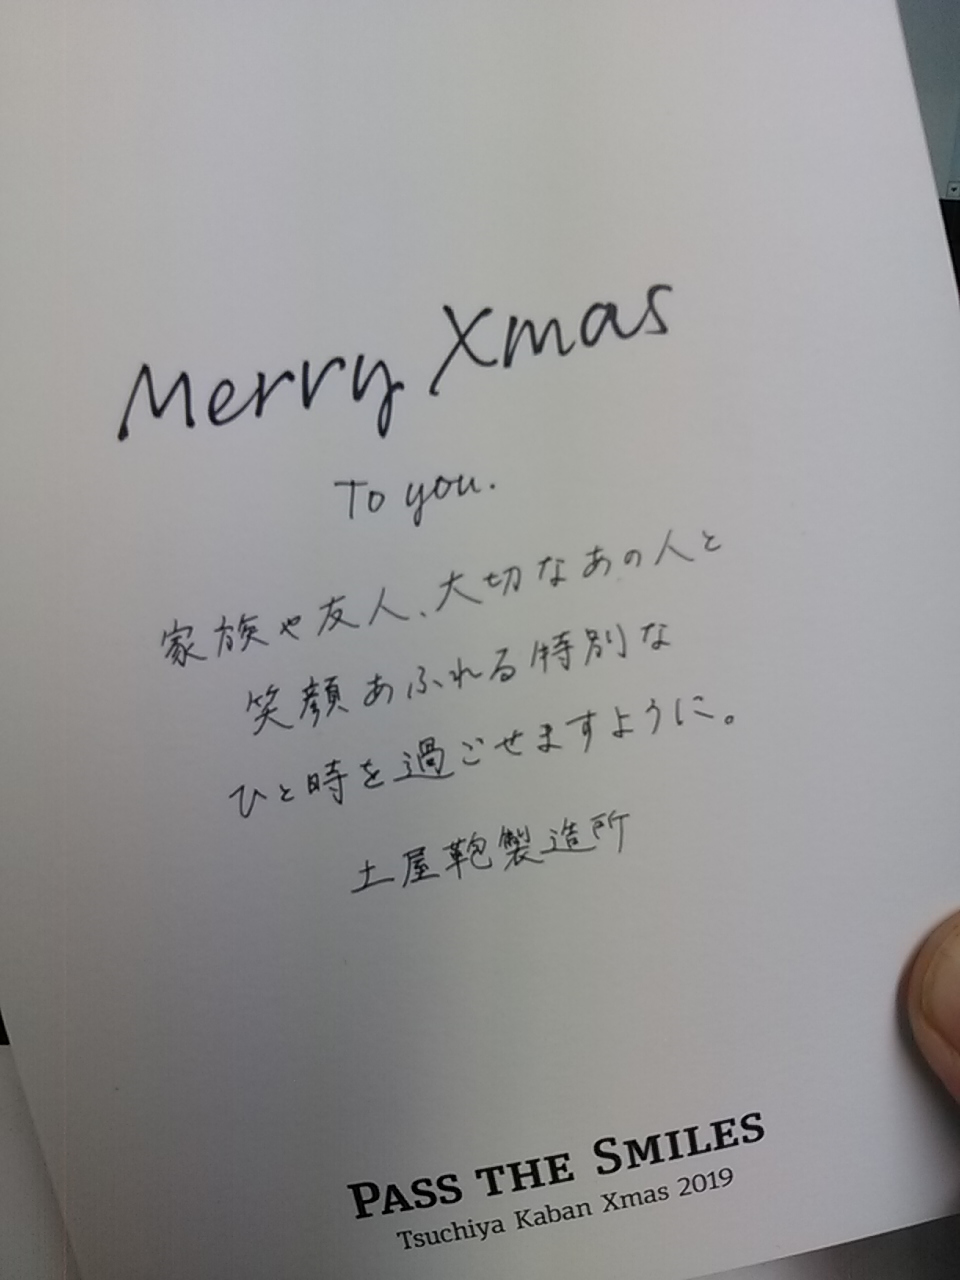 Merry Xmas
To you.
家族や友人、大切なあの人と
笑顔あふれる特別な
ひと時を過ごせますように。
土屋鞄製造所
PASS THE SMILES
Tsuchiya Kaban Xmas 2019